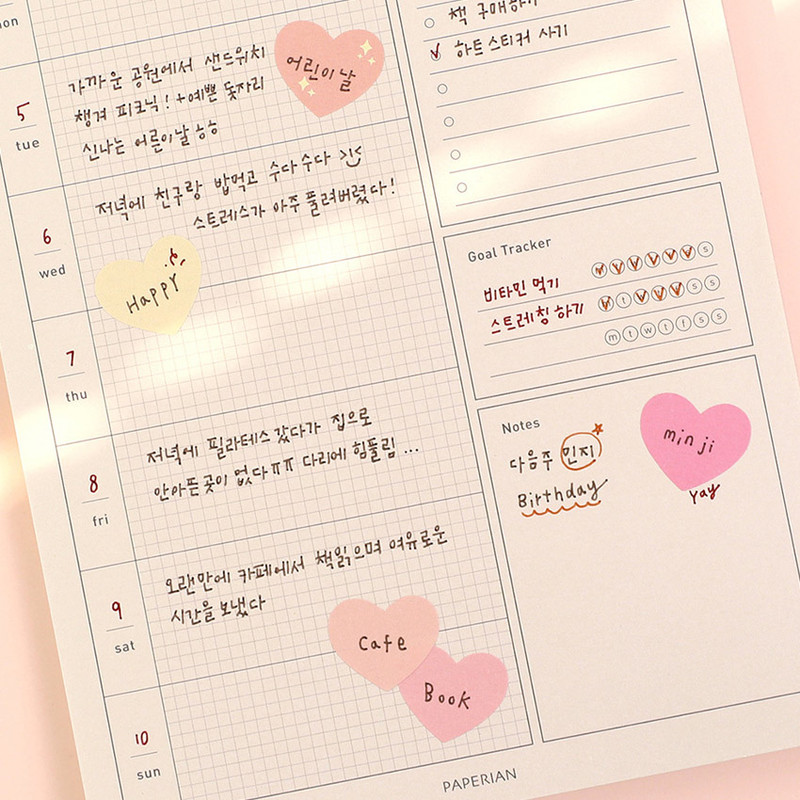 책 구매하기
하트스티커 사기
5
tue
가까운 공원에서 샌드위치
챙겨 피크닉! +예쁜 돗자리
신나는 어른이날 ㅎㅎ
어린이날
6
wed
저녁에 친구랑 밥먹고 수다수다
스트레스가 아주 풀려버렸다!
HAPPY
7
thu
8
fri
저녁에 필라테스 갔다가 집으로
안아픈곳이 없다ㅠㅠ 다리에 힘풀림...
9
sat
오랜만에 카페에서 책읽으며 여유로운
시간을 보냈다
Cafe
Book
10
sun
Goal Tracker
비타민 먹기
s
스트레칭 하기
t s s
m t w t f s s
Notes
다음주 민지
Birthday
minji
Yay
PAPERIAN